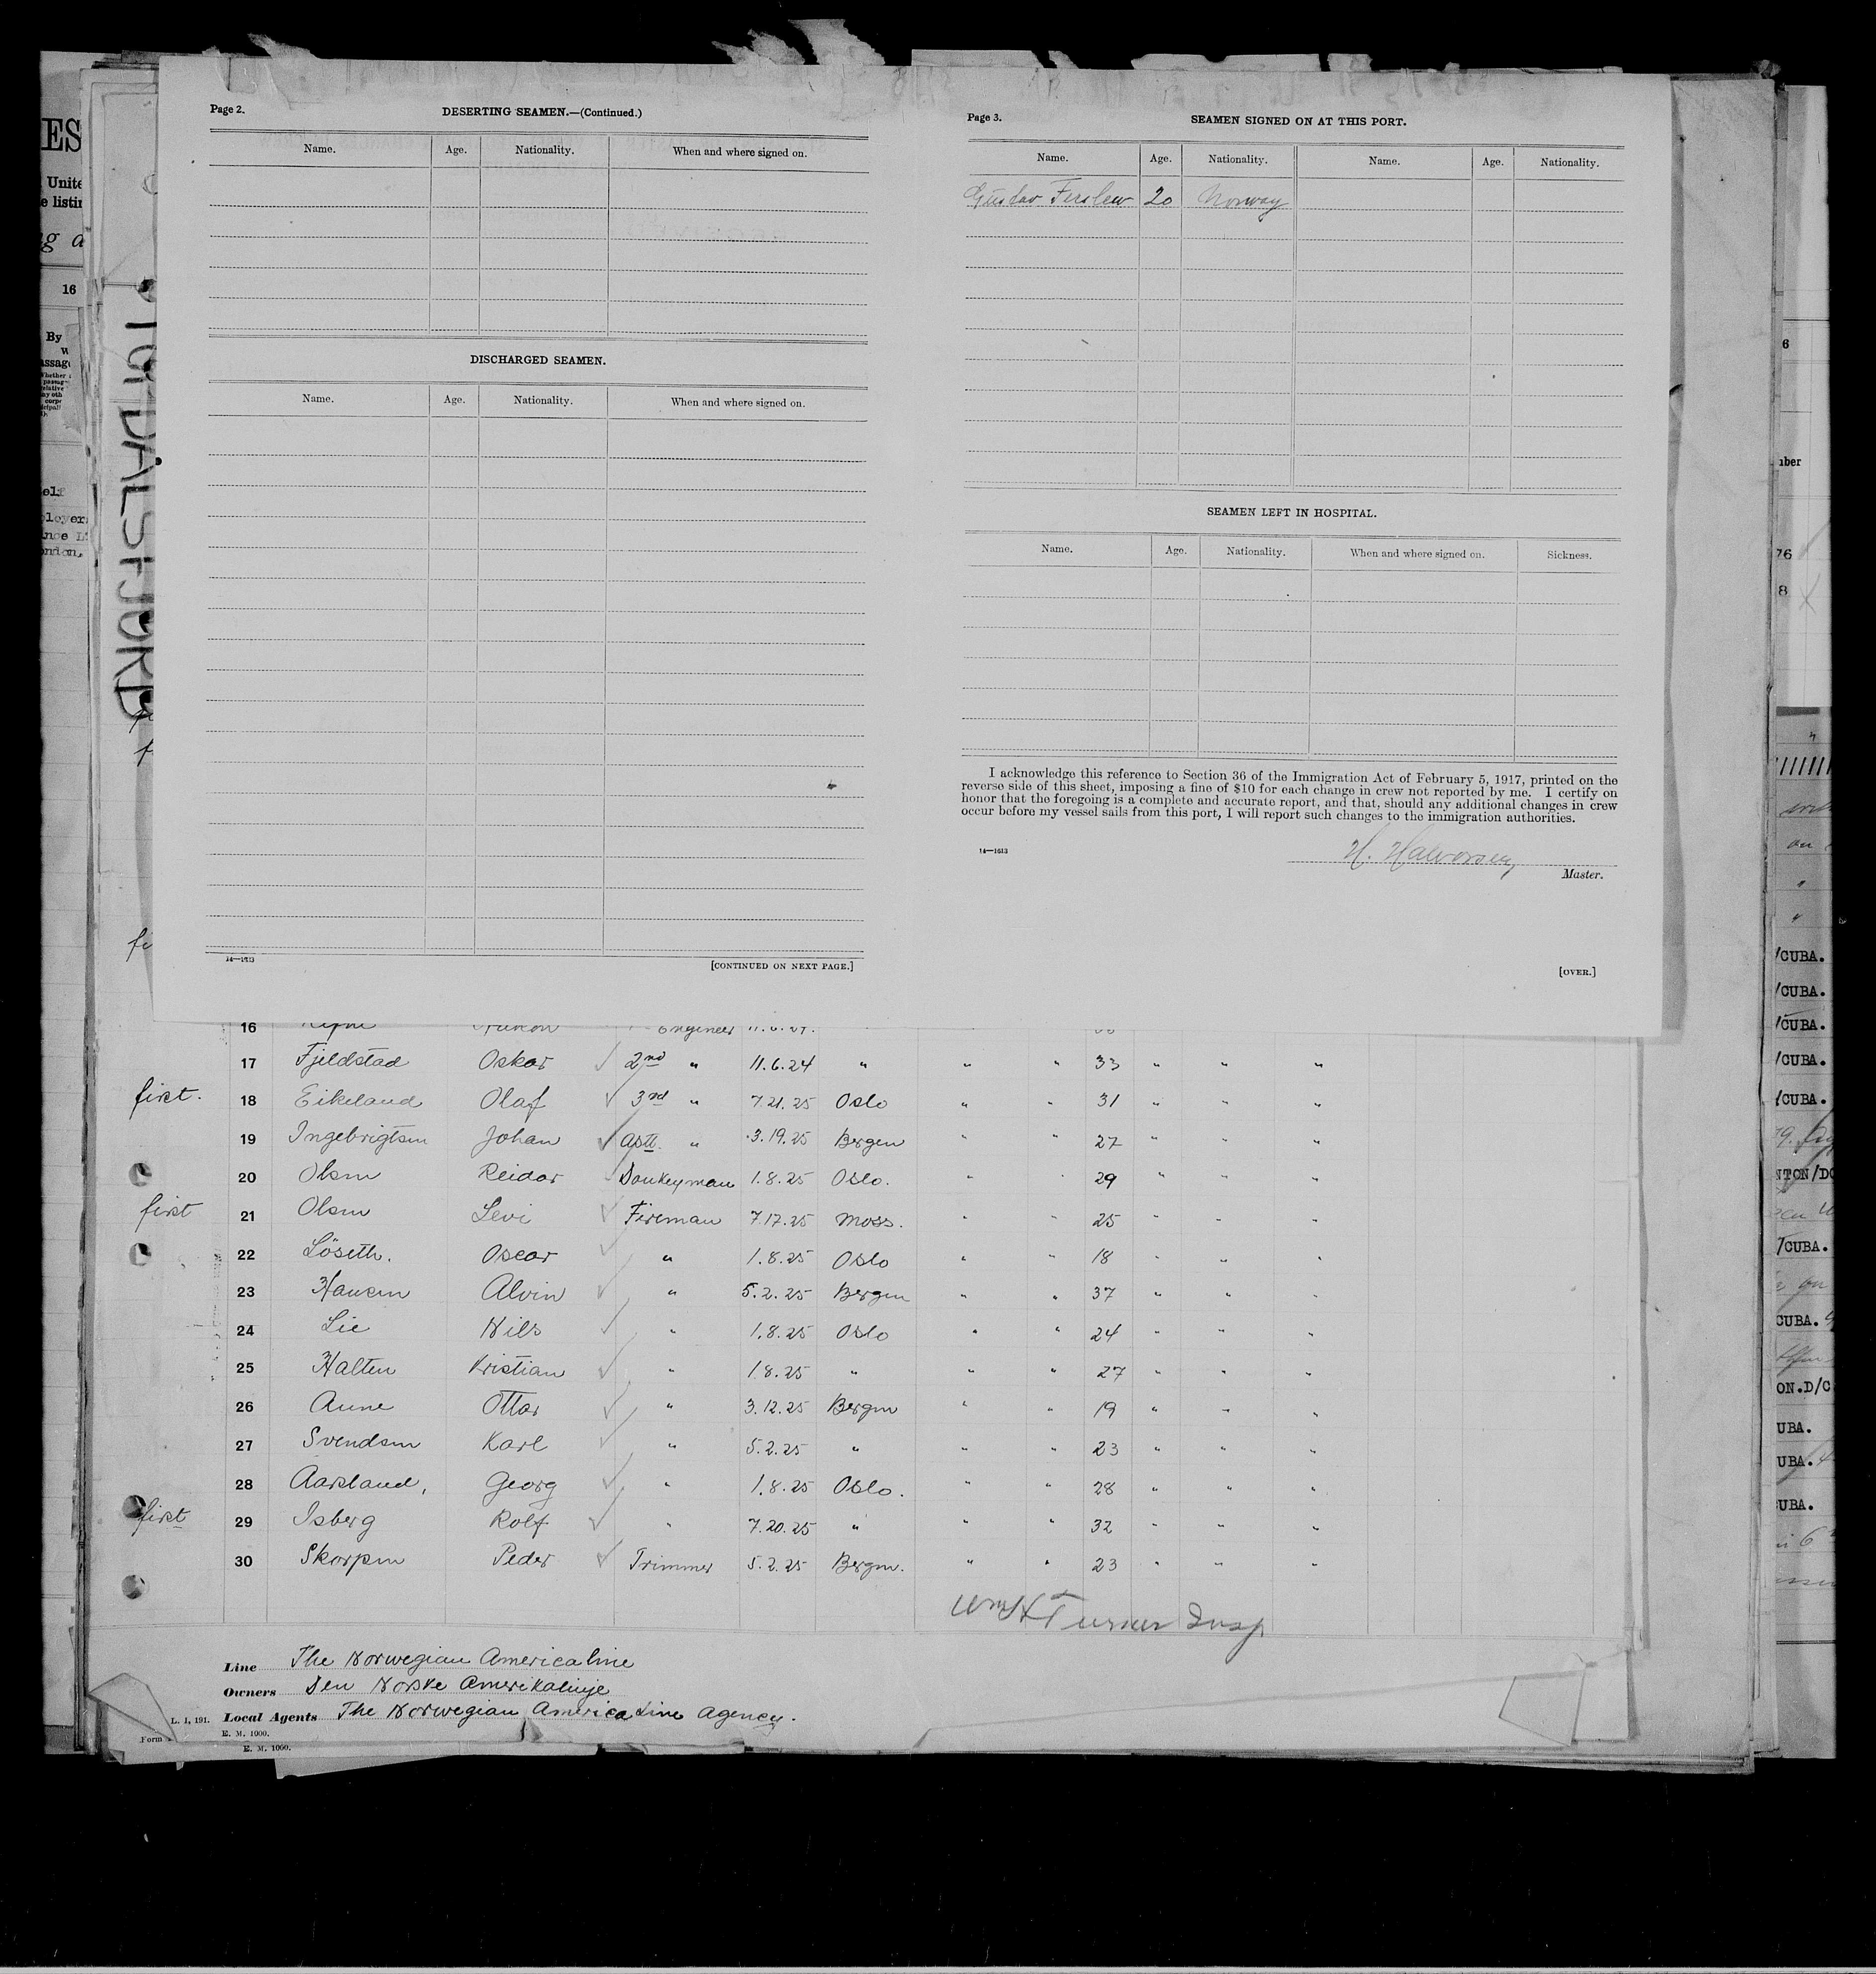 Page 2.
DESERTING SEAMEN.—(Continued.)
Name. Age. Nationality. When and where signed on.
DISCHARGED SEAMEN.
Name. Age. Nationality. When and where signed on.
14—1613
[CONTINUED ON NEXT PAGE.]
Page 3.
SEAMEN SIGNED ON AT THIS PORT.
Name. Age. Nationality. Name. Age. Nationality.
Gustav 20 Norway
SEAMEN LEFT IN HOSPITAL.
Name. Age. Nationality. When and where signed on. Sickness.
I acknowledge this reference to Section 36 of the Immigration Act of February 5, 1917, printed on the
reverse side of this sheet, imposing a fine of $10 for each change in crew not reported by me. I certify on
honor that the foregoing is a complete and accurate report, and that, should any additional changes in crew
occur before my vessel sails from this port, I will report such changes to the immigration authorities.
14—1613
H. Halvorsen
Master.
[OVER.]
16 Engineer
17 Fjeldstad Oskar 2nd " 11.6.24 " " " 33 " " "
first. 18 Eikeland Olaf 3rd " 7.21.25 Oslo " " 31 " " "
19 Ingebrigtsen Johan Astt. " 3.19.25 Bergen " " 27 " " "
20 Olsen Reidar Donkeyman 1.8.25 Oslo. " " 29 " " "
first 21 Olsen Levi Fireman 7.17.25 Moss. " " 25 " " "
22 Löseth. Oscar " 1.8.25 Oslo " " 18 " " "
23 Hansen Alvin " 5.2.25 Bergen " " 37 " " "
24 Lie Nils " 1.8.25 Oslo " " 24 " " "
25 Halten Kristian " 1.8.25 " " " 27 " " "
26 Aune Ottar " 3.12.25 Bergen " " 19 " " "
27 Svendsen Karl " 5.2.25 " " " 23 " " "
28 Aarsland, Georg " 1.8.25 Oslo. " " 28 " " "
first 29 Isberg Rolf " 7.20.25 " " " 32 " " "
30 Skorpen Peder Trimmer 5.2.25 Bergen. " " 23 " " "
Wm H Turner Insp
Line The Norwegian Americaline
Owners Den Norske Amerikalinje
L. I, 191. Local Agents The Norwegian America Line Agency.
E. M. 1000.
Form
E. M. 1000.
ES
16
By
CUBA.
CUBA.
CUBA.
CUBA.
CUBA.
CUBA.